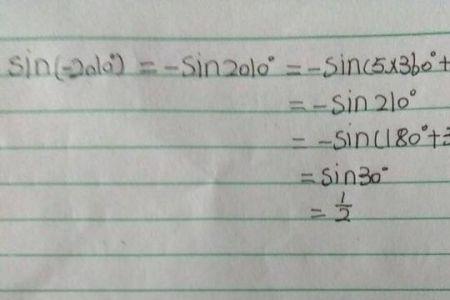 sin(-2010°) = -sin2010° = -sin(5×360°+
= -sin210°
= -sin(180°+3
= sin30°
= 1/2